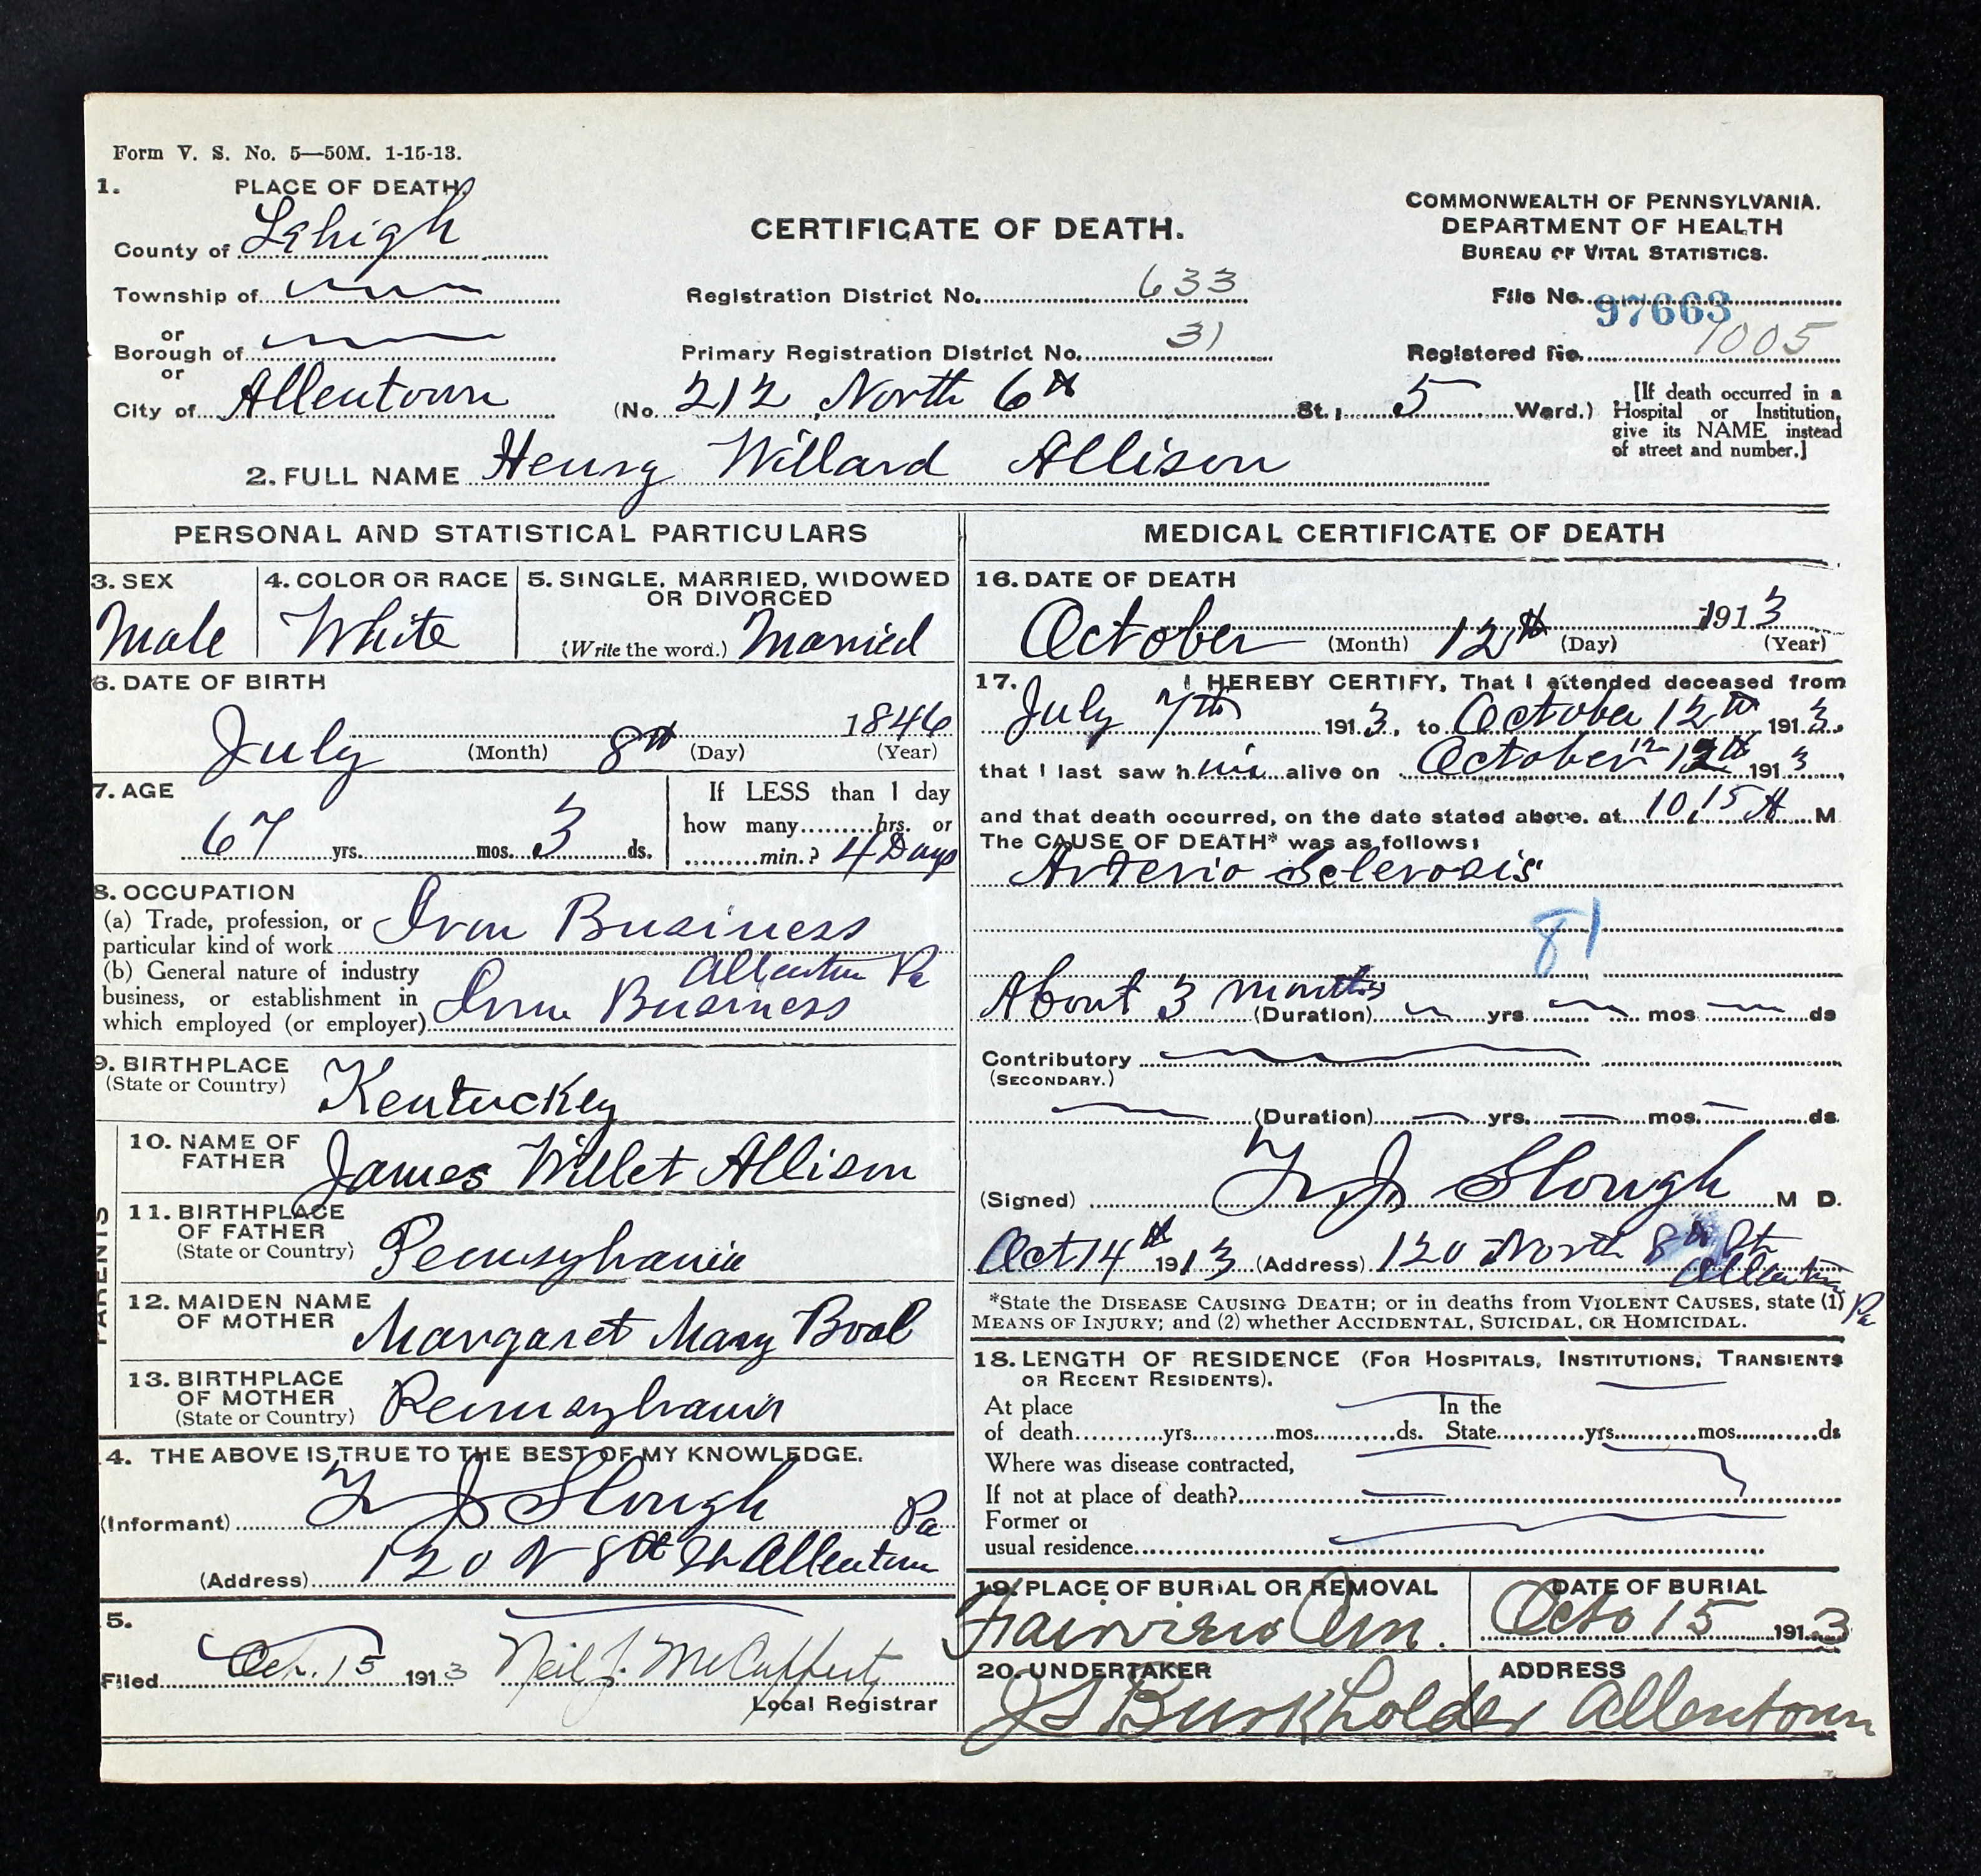 Form V. S. No. 5—50M. 1-15-13.
1. PLACE OF DEATH.
County of Lehigh
Township of
or
Borough of
or
City of Allentown
CERTIFICATE OF DEATH.
Registration District No. 633
Primary Registration District No. 31
(No 212 North 6th St., 5 Ward.)
COMMONWEALTH OF PENNSYLVANIA.
DEPARTMENT OF HEALTH
BUREAU OF VITAL STATISTICS.
File No. 97663
Registered No. 1005
[If death occurred in a
Hospital or Institution,
give its NAME instead
of street and number.]
2. FULL NAME Henry Willard Allison
PERSONAL AND STATISTICAL PARTICULARS
3. SEX
Male
4. COLOR OR RACE
White
5. SINGLE, MARRIED, WIDOWED
OR DIVORCED
(Write the word.) Married
6. DATE OF BIRTH
July (Month) 8th (Day) 1846 (Year)
7. AGE
67 yrs. mos. 3 ds.
If LESS than 1 day
how many hrs. or
min.? 4 Days
8. OCCUPATION
(a) Trade, profession, or
particular kind of work Iron Business
(b) General nature of industry
business, or establishment in
which employed (or employer) Iron Business
Allentown Pa
9. BIRTHPLACE
(State or Country) Kentuckey
PARENTS
10. NAME OF
FATHER James Willet Allison
11. BIRTHPLACE
OF FATHER
(State or Country) Pennsylvania
12. MAIDEN NAME
OF MOTHER Margaret Mary Boal
13. BIRTHPLACE
OF MOTHER
(State or Country) Pennsylvania
4. THE ABOVE IS TRUE TO THE BEST OF MY KNOWLEDGE.
(Informant) J Slough Pa
(Address) 120 N 8th St Allentown
5.
Filed Oct. 15 1913 Neil J. McCafferty
Local Registrar
MEDICAL CERTIFICATE OF DEATH
16. DATE OF DEATH
October (Month) 12th (Day) 1913 (Year)
17. I HEREBY CERTIFY, That I attended deceased from
July 7th 1913, to October 12th 1913.
that I last saw him alive on October 12 12th 1913,
and that death occurred, on the date stated above. at 10.15 A M
The CAUSE OF DEATH* was as follows:
Arterio Sclerosis
81
About 3 months (Duration) yrs mos ds
Contributory
(SECONDARY.)
(Duration) yrs. mos. ds.
(Signed) J Slough M D.
Oct 14th 1913 (Address) 120 North 8th St
Allentown
Pa
*State the DISEASE CAUSING DEATH; or in deaths from VIOLENT CAUSES, state (1)
MEANS OF INJURY; and (2) whether ACCIDENTAL, SUICIDAL, OR HOMICIDAL.
18. LENGTH OF RESIDENCE (FOR HOSPITALS, INSTITUTIONS, TRANSIENTS
OR RECENT RESIDENTS).
At place In the
of death yrs. mos. ds. State yrs. mos. ds
Where was disease contracted,
If not at place of death?
Former or
usual residence
19. PLACE OF BURIAL OR REMOVAL
Fairview Cem.
DATE OF BURIAL
Octo 15 1913
20. UNDERTAKER
J S Burkholder
ADDRESS
Allentown